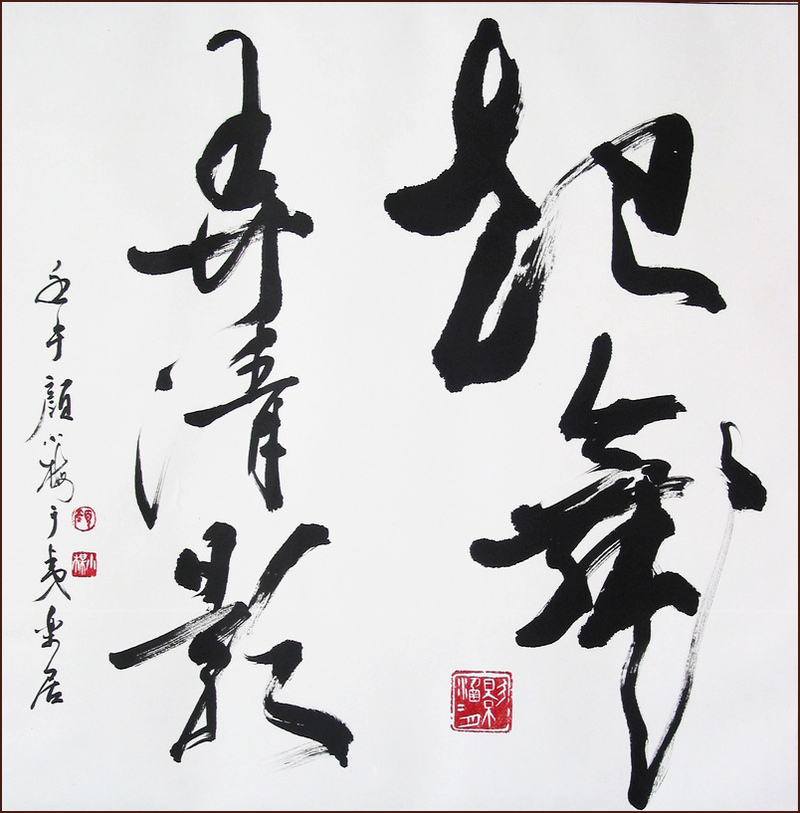 起舞
弄清影
壬午顔小梅于夷樂居